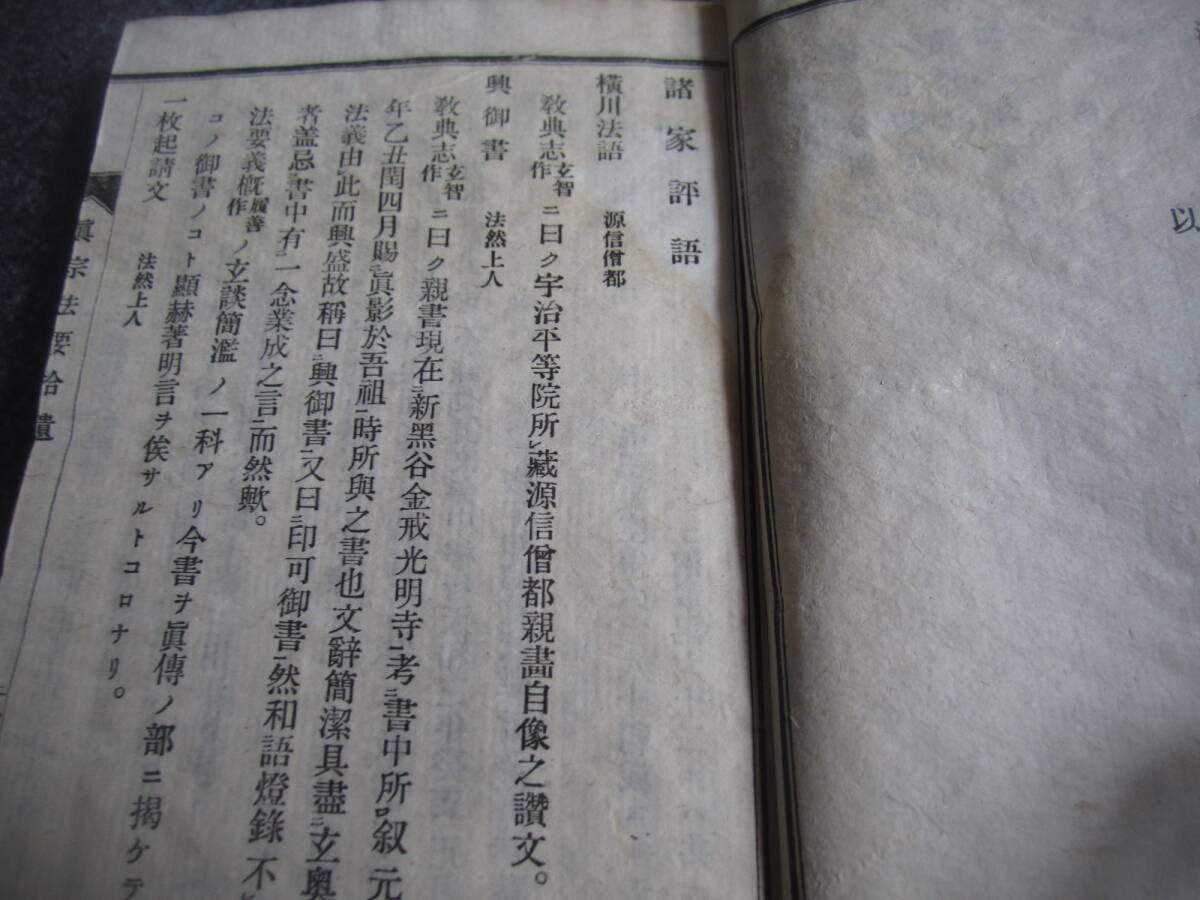 以
諸家評語
橫川法語　源信僧都
敎典志玄智作ニ曰ク宇治平等院所レ藏源信僧都親畫自像之讚文。
興御書　法然上人
敎典志玄智作ニ曰ク親書現在二新黑谷金戒光明寺一考二書中所レ叙元
年乙丑閏四月賜二眞影於吾祖一時所與之書也文辭簡潔具盡二玄奧
法義由レ此而興盛故稱曰二興御書一又曰二印可御書一然和語燈錄不
者盖忌下書中有二一念業成之言上而然歟。
法要義槪履善作ノ玄談簡濫ノ一科アリ今書ヲ眞傳ノ部ニ揭ケテ
コノ御書ノコト顯赫著明言ヲ俟サルトコロナリ。
一枚起請文　法然上人
眞宗法要拾遺